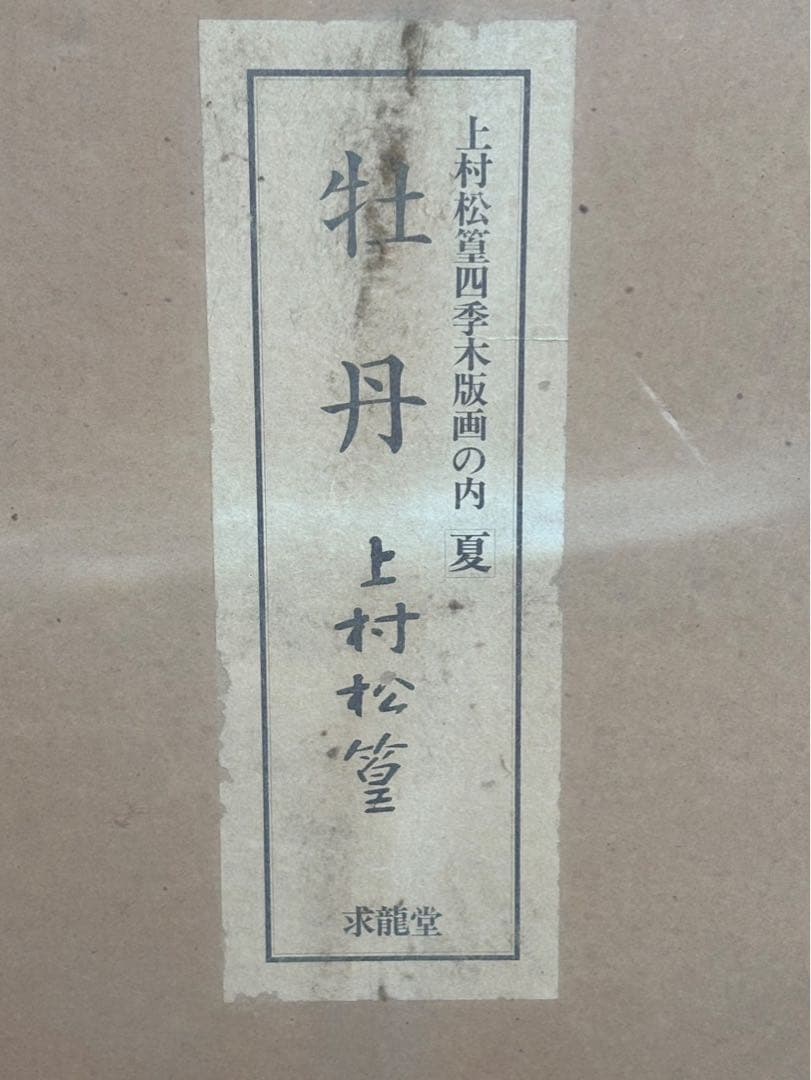 上村松篁四季木版画の内「夏」
牡丹
上村松篁
求龍堂